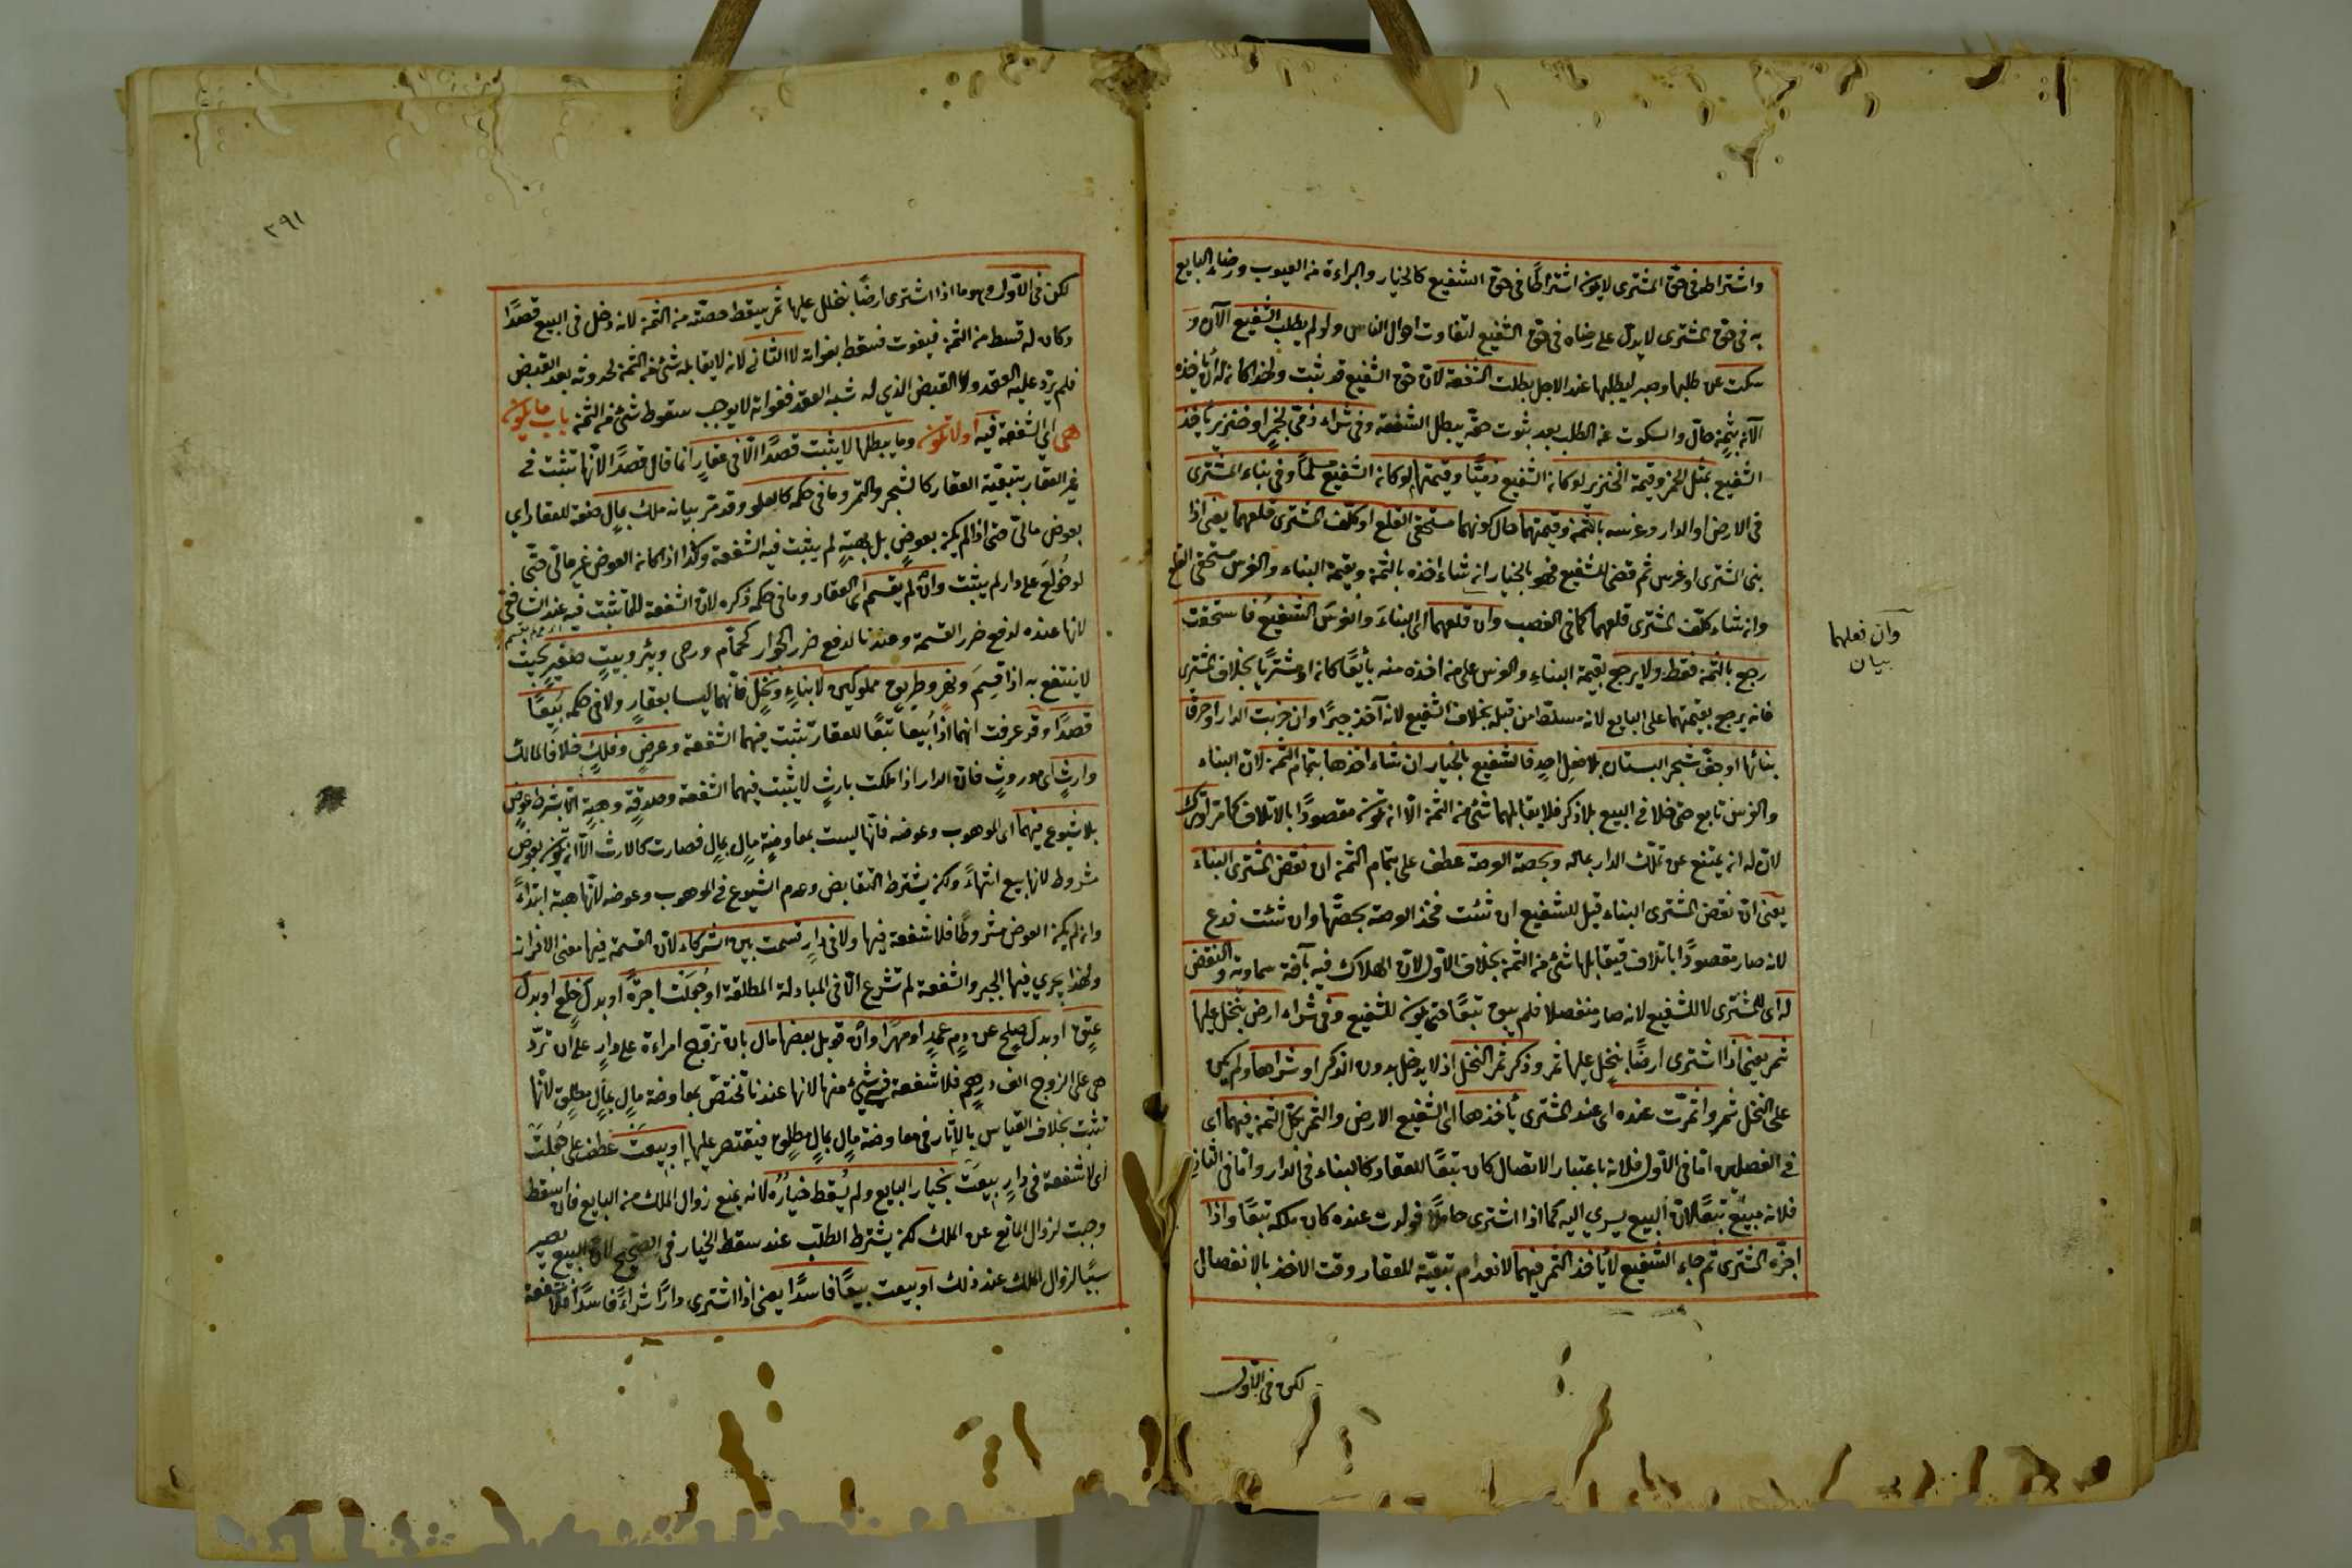 واشتراطه في حق المشترى لايكون اشتراطًا في حق الشفيع كالخيار والبراءة من العيوب ورضاء البايع
به في حق المشترى لا يدل على رضاه في حق الشفيع لتفاوت احوال الناس ولو لم يطلب الشفيع الآن و
سكت عن طلبها وصبر ليطلبها عند الاجل بطلت الشفعة لان حق الشفيع قد ثبت ولهذا كان له ان ياخذه
الآن بثمن حال والسكوت عن الطلب بعد ثبوت حقه يبطل الشفعة وفي شراء ذمي بخمر او خنزير ياخذ
الشفيع بمثل الخمر وقيمة الخنزير لو كان الشفيع ذميًّا وقيمتهما لو كان الشفيع مسلمًا وفي بناء المشترى
في الارض او الدار وغرسه بالثمن وقيمتهما حال كونهما مستحقي القلع او كلف المشترى قلعهما يعنى اذا
بنى المشترى او غرس ثم قضى للشفيع فهو بالخيار ان شاء اخذه بالثمن وبقيمة البناء والغرس مستحقي القلع
وان شاء كلف المشترى قلعهما كما في الغصب وان قلعهما اى البناءَ والغرسَ الشفيعُ فاستحقت
رجع بالثمن فقط ولا يرجع بقيمة البناء والغرس على من اخذه منه بائعًا كان او مشتريًا بخلاف المشترى
فانه يرجع بقيمتهما على البايع لانه مسلط من قبله بخلاف الشفيع لانه آخذ جبرًا وان خربت الدار او حرق
بنائها او جف شجر البستان بلا فعل احد فالشفيع بالخيار ان شاء اخذها بتمام الثمن لان البناء
والغرس تابع حتى دخلا في البيع بلا ذكر فلا يقابلهما شئ من الثمن الا ان يكون مقصودًا بالاتلاف كما مر او ترك
لان له ان يمتنع عن تملك الدار بماله وبحصة العرصة عطف على بتمام الثمن ان نقض المشترى البناء
يعنى ان نقض المشترى البناء قيل للشفيع ان شئت فخذ العرصة بحصتها وان شئت فدع
لانه صار مقصودًا باتلاف فيقابلها شئ من الثمن بخلاف الاول لان الهلاك فيه بآفة سماوية والنقض
له اى للمشترى لا للشفيع لانه صار منفصلا فلم يبق تبعًا حتى يكون للشفيع وفي شراء ارض بنخل عليها
ثمر يعنى اذا اشترى ارضًا بنخل عليها ثمر وذكر ثمر النخل اذ لا يدخل بدون الذكر او شراها ولم يكن
على النخل ثمر واثمرت عنده اى عند المشترى يأخذها اى الشفيع الارض والثمر بكل الثمن فيهما اى
في الفصلين اما في الاول فلانه باعتبار الاتصال كان تبعًا للعقار كالبناء في الدار واما في الثاني
فلانه مبيع تبعًا لان البيع يسرى اليه كما اذا اشترى حاملًا فولدت عنده كان ملكه تبعًا واذا
اجزّه المشترى ثم جاء الشفيع لا يأخذ الثمر فيهما لانعدام تبعيّة للعقار وقت الاخذ بالانفصال
لكن في الاول
وان قعلهما
بيان
٣٩١
لكن في الاول وهو ما اذا اشترى ارضًا بنخل عليها ثمر يسقط حصته من الثمن لانه دخل في البيع قصدًا
وكان له قسط من الثمن فيفوت فسقط بفواته لا الثاني لانه لا يقابله شئ من الثمن لحدوثه بعد القبض
فلم يرد عليه العقد ولا القبض الذي له شبه العقد ففواته لا يوجب سقوط شئ من الثمن باب ما يكون
هي اي الشفعة فيه او لا تكون وما يبطلها لا يثبت قصدًا الّا في عقار انما قال قصدًا لانها تثبت في
غير العقار بتبعية العقار كالشجر والثمر وما في حكمه كالعلو وقد مر بيانه ملك بمال صفة للعقار اي
بعوض مالي حتى اذا لم يكن بعوض بل بهبة لم يثبت فيه الشفعة وكذا اذا كان العوض غير مالي حتى
لو خولع على دار لم يثبت وان لم يقسم اى العقار وما في حكمه ذكره لان الشفعة لا تثبت فيه عند الشافعي
لانها عنده لدفع ضرر القسمة وعندنا لدفع ضرر الجوار كحمّام ورحى وبئر وبيت صغير بحيث
لا ينتفع به اذا قسم ونهر وطريق مملوكين لا بناء ونخل فانهما ليسا بعقار ولا في حكمه بيعًا
قصدًا وقد عرفت انهما اذا بيعا تبعًا للعقار تثبت فيهما الشفعة وعرض وفلك خلافا لمالك
وارث اى موروث فان الدار اذا ملكت بارث لا يثبت فيهما الشفعة وصدقة وهبة الّا بشرط عوض
بلا شيوع فيهما اى الموهوب وعوضه فانها ليست بمعاوضة مال بمال فصارت كالارث الا ان تكون بعوض
مشروط لانها بيع انتهاءً ولكن يشترط التقابض وعدم الشيوع في الموهوب وعوضه لانها هبة ابتداءً
وان لم يكن العوض مشروطًا فلا شفعة فيها ولا في دار قسمت بين الشركاء لان القسمة فيها معنى الافراز
ولهذا يجري فيها الجبر والشفعة لم تشرع الّا في المبادلة المطلقة او جُعلت اجرةً او بدل خلع او بدل
عتق او بدل صلح عن دم عمد او مهرًا وان قوبل ببعضها مال بان تزوج امراءة على دار على ان تردّ
هي على الزوج الف درهم فلا شفعة في شئ منها لانها عندنا تختص بمعاوضة مال بمال مطلق لانها
تثبت بخلاف القياس بالآثار في معاوضة مال بمال مطلق فيقتصر عليها او بيعت عطف على جُعلت
اى لا شفعة في دار بيعت بخيار البايع ولم يُسقط خيارُه لانه يمنع زوال الملك من البايع فان اسقط
وجبت لزوال المانع عن الملك لكن يشترط الطلب عند سقط الخيار في الصحيح لان البيع يصير
سببًا لزوال الملك عند ذلك او بيعت بيعًا فاسدًا يعنى اذا اشترى دارًا شراءً فاسدًا فلا شفعة